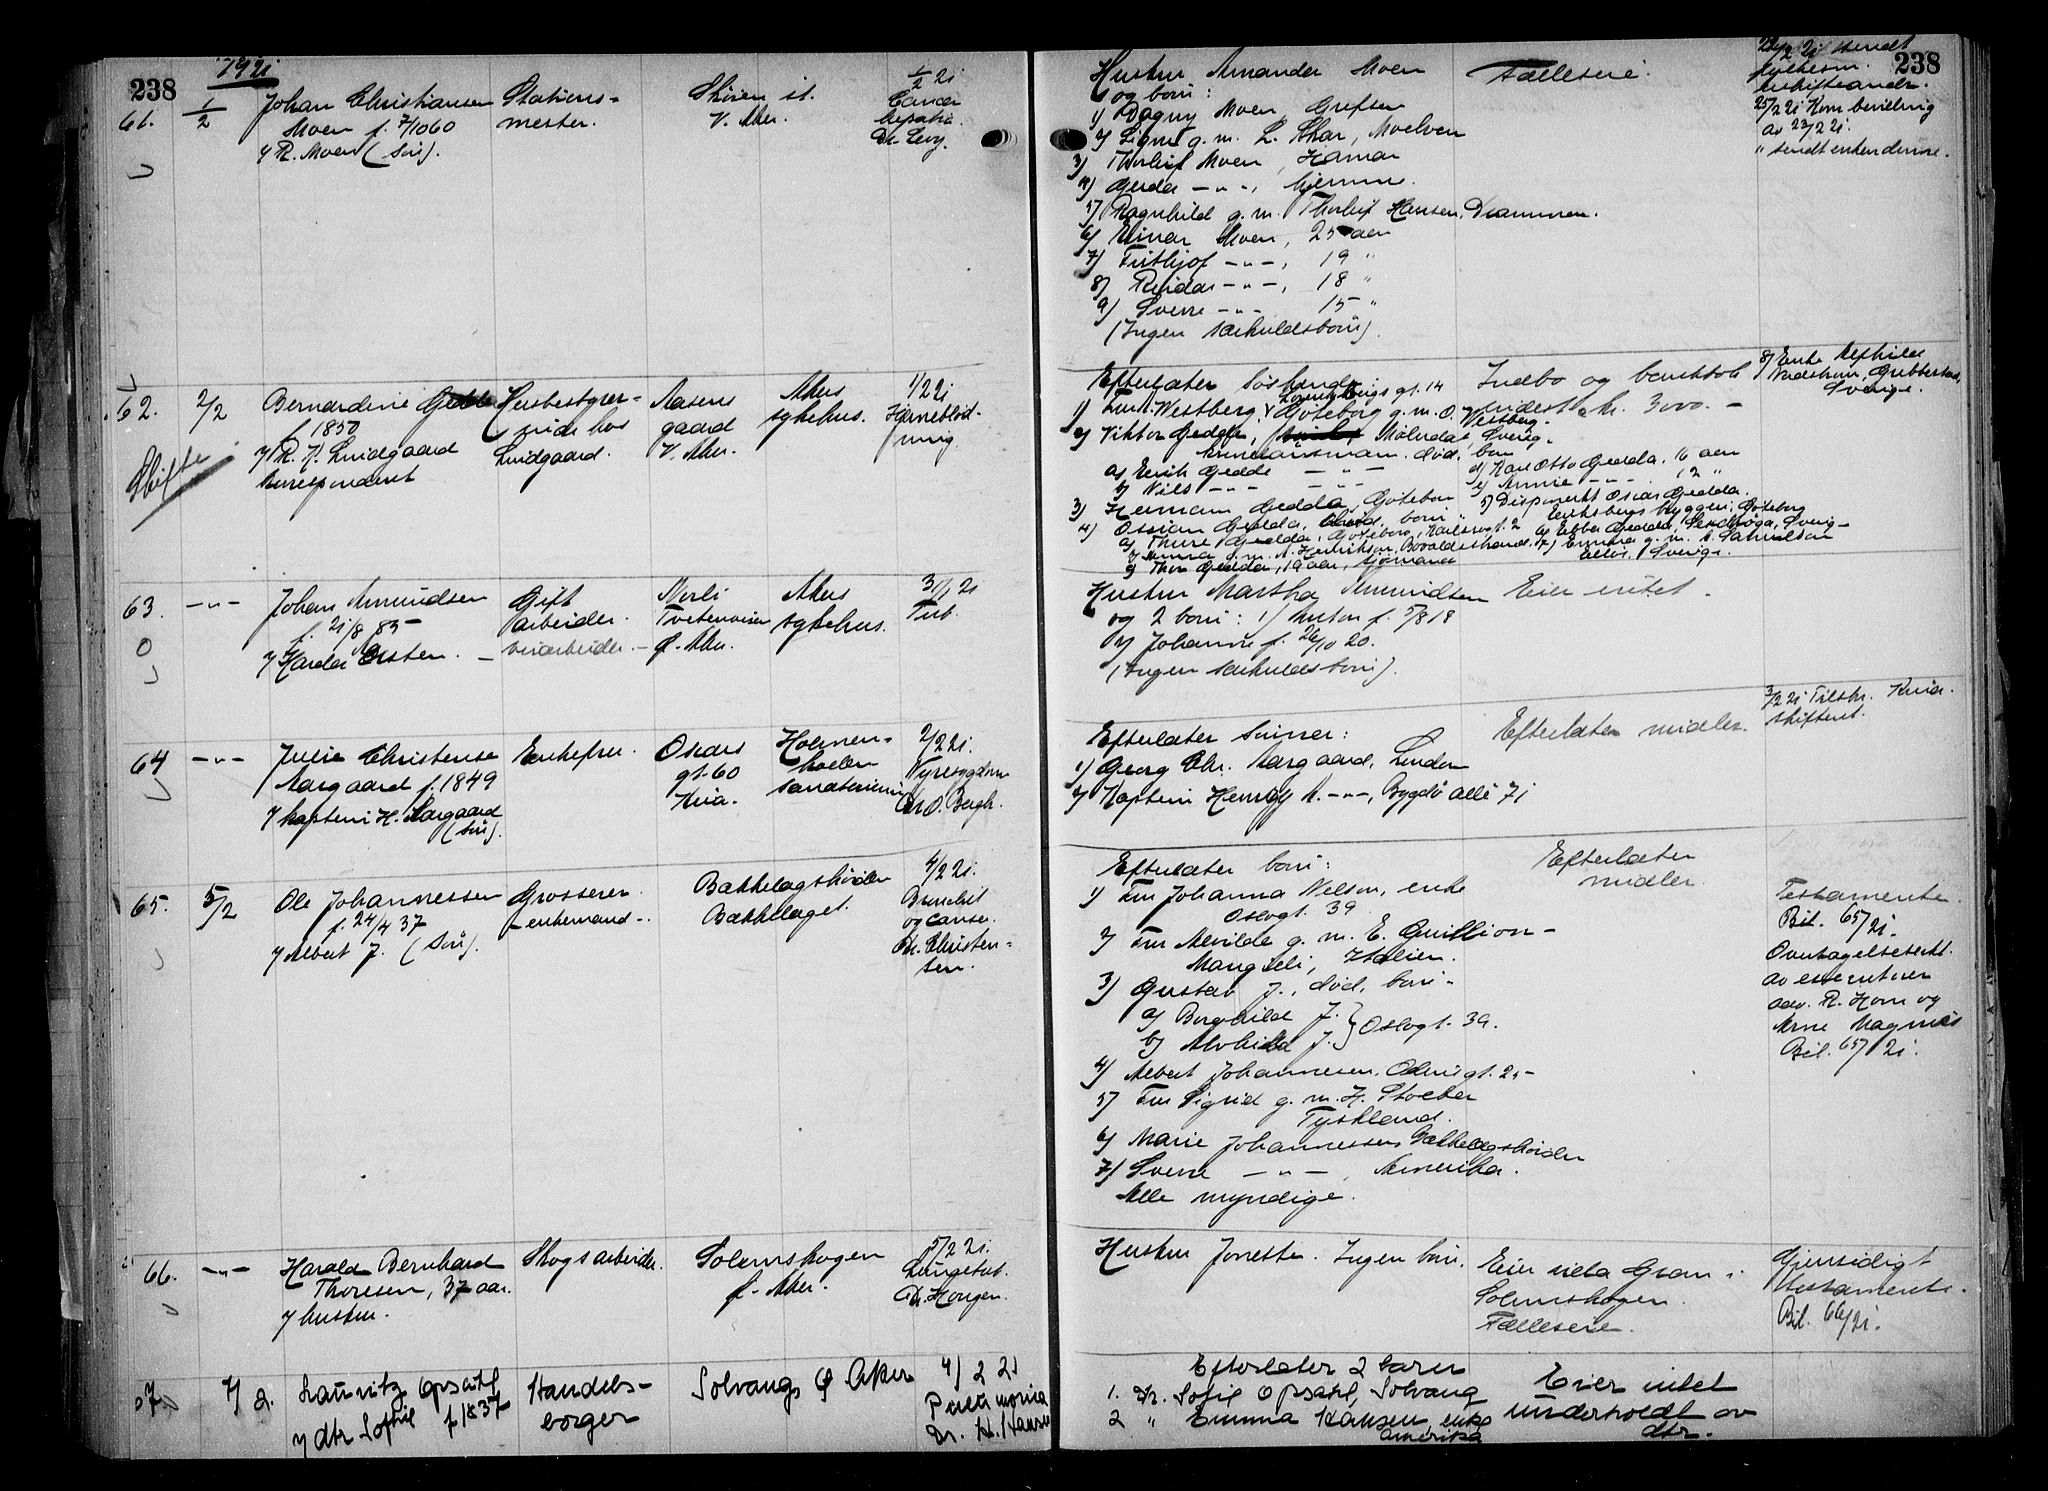 238
1921
61.
1/2
Johan Christiansen
Moen f. 7/10 60
v/ R. Moen (søn).
Stations-
mester.
Skøien st.
V. Aker.
1/2 21
Cancer
hepatis.
Dr. Levy.
Hustru Amanda Moen
og børn:
1) Dagny Moen, Grefsen
2) Signe g. m. L. Skar, Moelven
3) Thorleif Moen, Hamar
4) Gerda -"-, hjemme.
5) Ragnhild g. m. Thorleif Hansen, Drammen.
6) Einar Moen, 25 aar
7) Fritjof -"-, 19 "
8) Reidar -"-, 18 "
9) Sverre -"- 15 "
(Ingen særkuldsbørn).
Fælleseie.
238
25/2 21 Kom. bevilling
av 23/2 21.
" sendt enken denne.
62.
2/2
Skifte
Bernardine Gedda
f. 1850
v/ R. K. Lindgaard
korrespondent
Husbestyrer-
inde hos
Lindgaard.
Aasens
gaard
V. Aker.
Akers
sykehus.
1/2 21
Hjerneblød-
ning.
Efterlater søskende
1) Emil. Westberg, Göteborg g. m. O. Westberg.
2) Viktor Gedda, Mölndal, Sverig.
død, børn
a) Erik Gedda -"-
b) Nils -"- -"-
d) Karl Otto Gedda, 16 aar
e) Annie -"- 12 "
3) Herman Gedda, Göteborg
4) Ossian Gedda, død, børn
a) Thure Gedda, Göteborg, Karlsrogt. 2
b) Anna g. m. A. Henriksson, Bovallstrand.
c) Thor Gedda, 19 aar, sjömand
5) Disponent Oscar Gedda.
Eriksbergs byggeri, Göteborg
6) Ebba Gedda, Sverig-
7) Emma g. m. A. Samuelson
Ellös, Sverige.
Indbo og bankbok
mindst kr. 3000.-
8) Enke Mathilda
Nordström, Grebbestad,
Sverige.
63.
-"-
Johan Amundsen
f. 21/8 85
v/ Harda Østen.
Gift
arbeider.
Norli
Tvetenveien
Ø. Aker.
Akers
sykehus.
31/1 21
Tub.
Hustru Martha Amundsen
og 2 børn: 1) Anton f. 5/8 18
2) Johanne f. 26/10 20.
(Ingen særkuldsbørn).
Eier intet.
64
-"-
Julie Christense
Aargaard f. 1849
v/ kaptein H. Aargaard
(søn).
Enkefru.
Oscars
gt. 60
Kria.
Holmen-
kollen
sanatorium
2/2 21.
Nyresygdom
Dr. O. Bergh.
Efterlater sønner:
1) Georg Chr. Aargaard, London
2) Kaptein Henry A. -"-, Bygdø alle 71
Efterlater midler.
3/2 21 Tilskr. Kria.
skifteret.
65.
5/2
Ole Johannessen
f. 24/4 37
v/ Albert J. (søn).
Grosserer
enkemand-.
Bækkelagshøiden
Bækkelaget.
4/2 21.
Bronchit
og cancer.
Dr. Christen-
sen.
Efterlater børn:
1) Fru Johanna Nelson, enke
Oslogt. 39
2) Fru Alvilde g. m. E. Guillion-
Mangilli, Italien.
3) Gustav J., død, børn-
a) Borghild J. } Oslogt. 39.
b) Alvhilda J.
4) Albert Johannessen, Odinsgt. 25-
5) Fru Sigrid g. m. H. Stoeber
Tyskland.
6) Marie Johannessen, Bækkelagshøiden
7) Sverre -"-, Amerika.
Alle myndige.
Efterlater
midler.
Testamente
Bil. 65/21.
Overtagelseserkl.
av executorer
adv. R. Horn og
Arne Magnus
Bil. 65/21.
66.
-"-
Harald Bernhard
Thoresen, 37 aar.
v/ hustru.
Skogsarbeider.
Solemskogen
Ø. Aker.
5/2 21.
Lungetub.
Dr. Horgen.
Hustru Jonette. Ingen børn.
Eier villa Gran i
Solemskogen.
Fælleseie.
Gjensidigt
testamente.
Bil. 66/21.
67
7/2.
Lauritz Opsahl
f 1837
v/ dtr Sofie
Handels-
borger
Solvang, Ø Aker
4/2 21
Pneumonia
Dr. H. Hansen
Efterlater 2 barn
1. Fr. Sofie Opsahl, Solvang
2 " Emma Hansen, enke
Amerika
Eier intet
underholdt av
dtr.